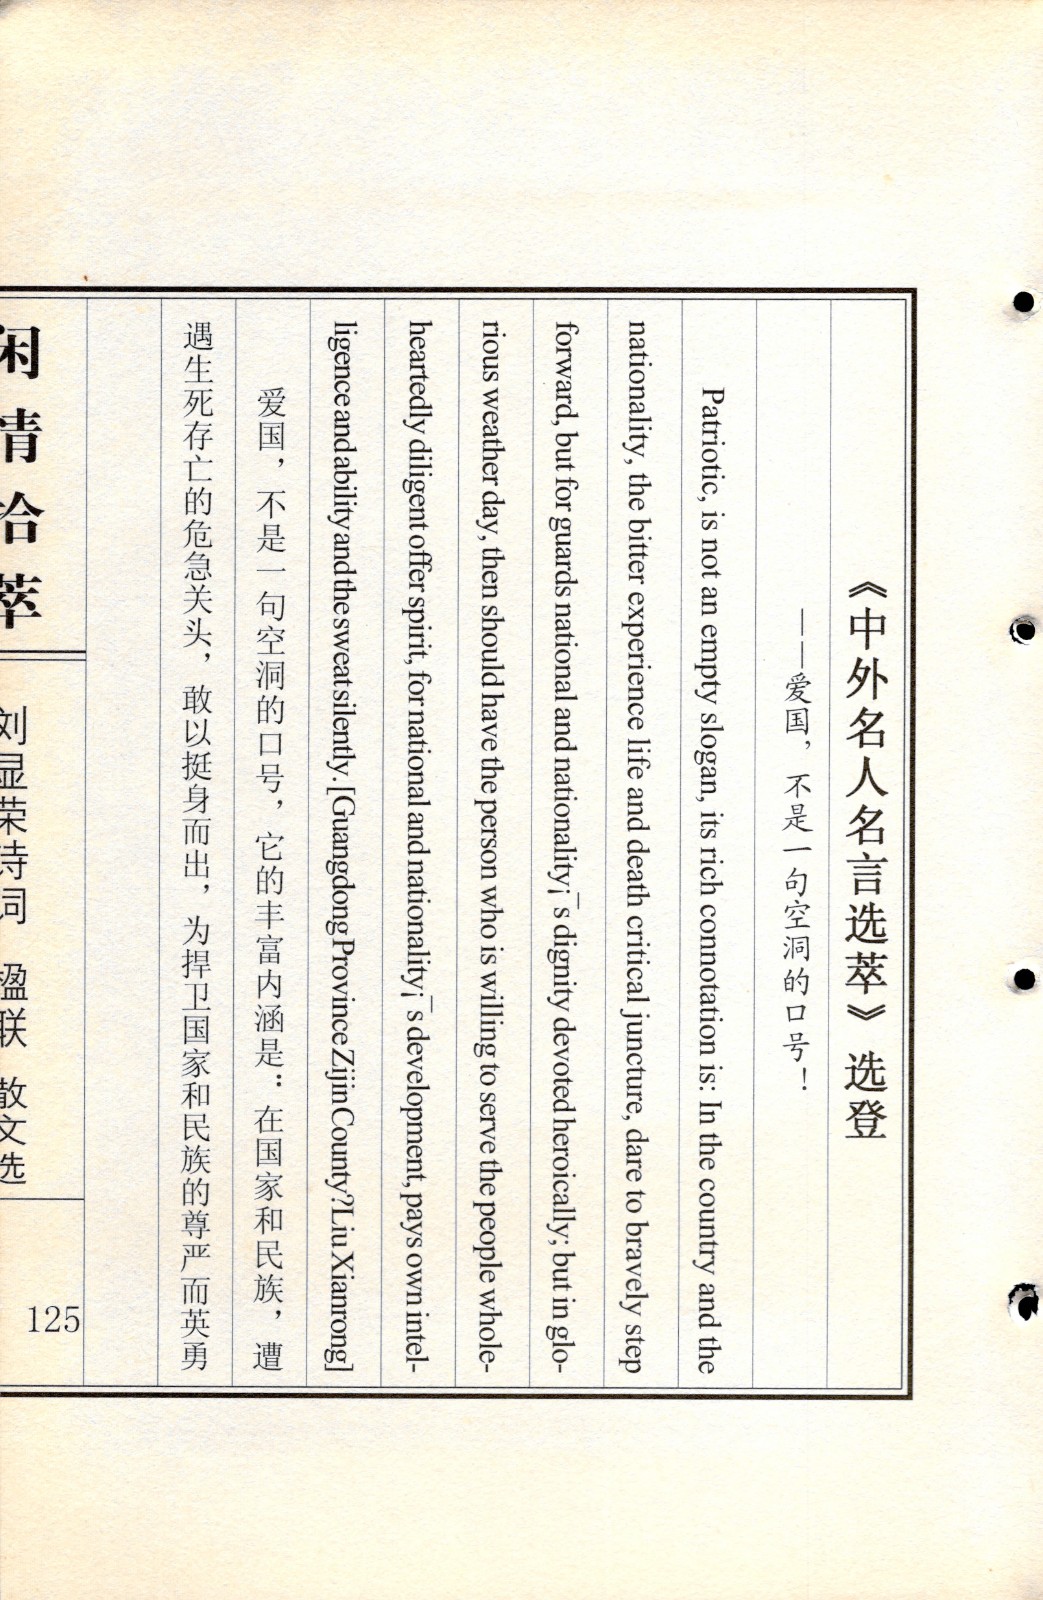 《中外名人名言选萃》选登
——爱国，不是一句空洞的口号！
Patriotic, is not an empty slogan, its rich connotation is: In the country and the
nationality, the bitter experience life and death critical juncture, dare to bravely step
forward, but for guards national and nationality¡¯s dignity devoted heroically; but in glo-
rious weather day, then should have the person who is willing to serve the people whole-
heartedly diligent offer spirit, for national and nationality¡¯s development, pays own intel-
ligence and ability and the sweat silently. [Guangdong Province Zijin County?Liu Xianrong]
爱国，不是一句空洞的口号，它的丰富内涵是：在国家和民族，遭
遇生死存亡的危急关头，敢以挺身而出，为捍卫国家和民族的尊严而英勇
闲情拾萃
刘显荣诗词 楹联 散文选
125